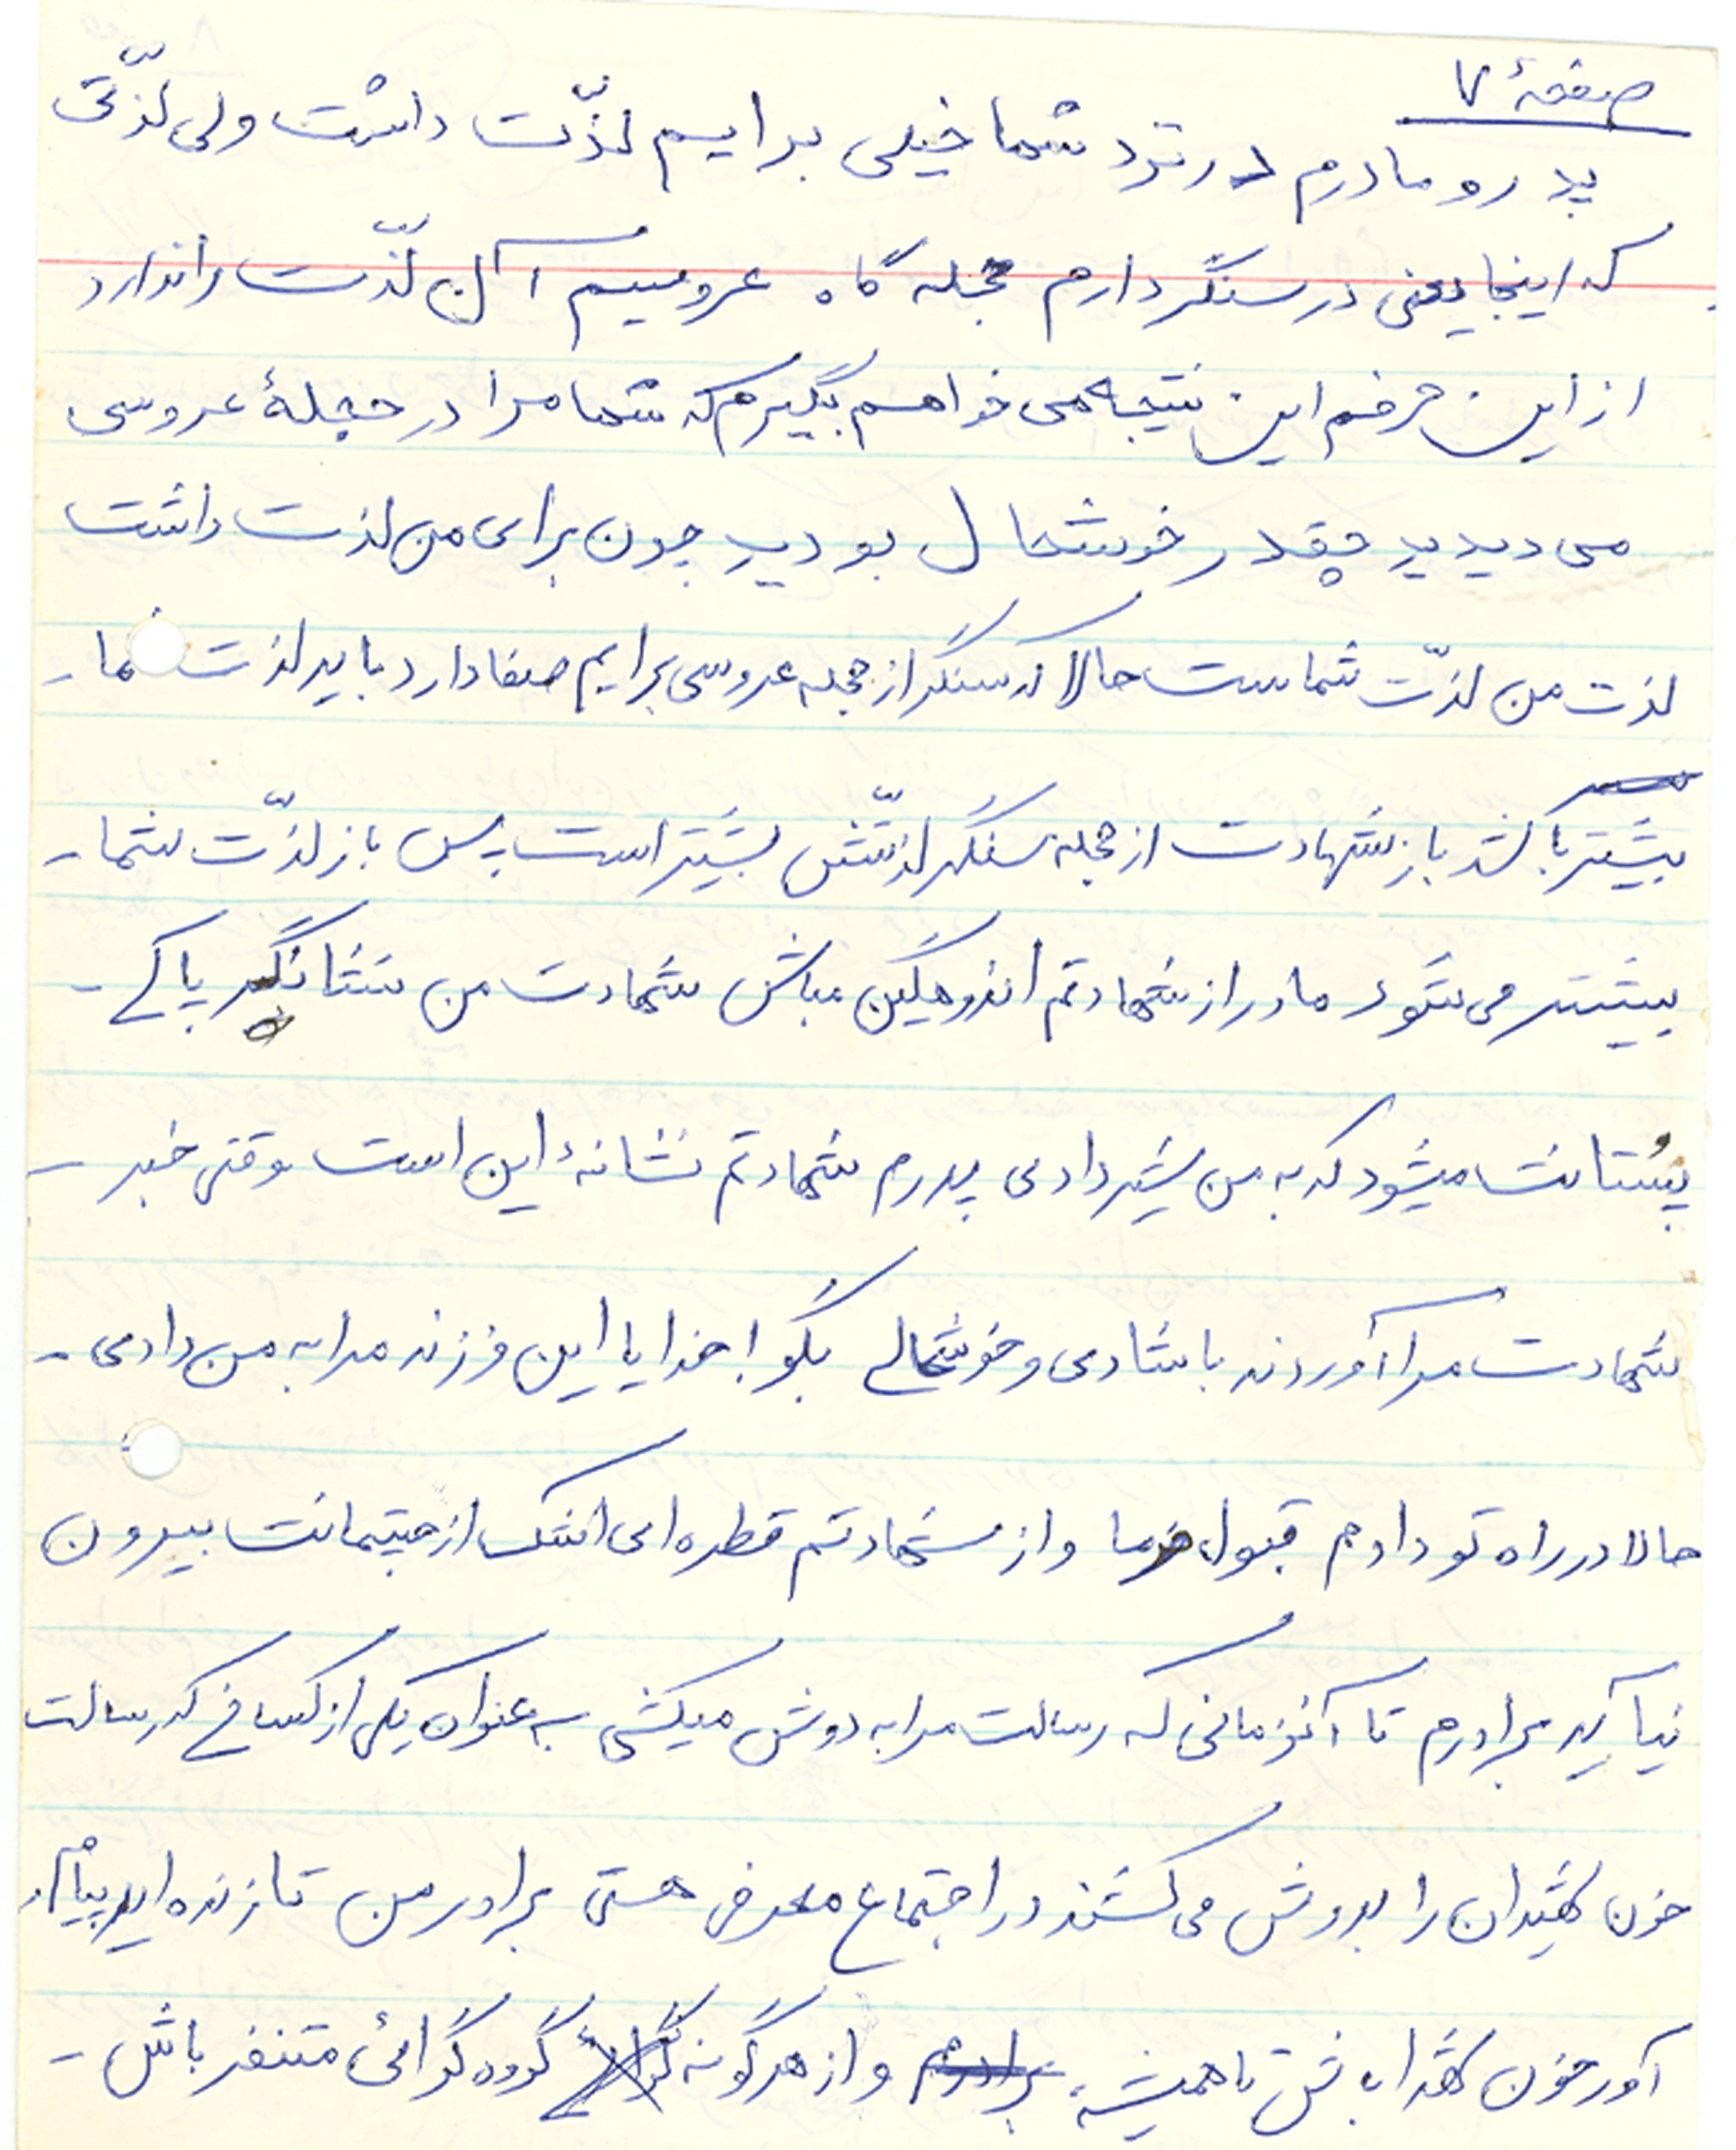 صفحهٔ ۷
پدر و مادرم در نزد شما خیلی برایم لذّت داشت ولی لذّتی
که اینجا یعنی در سنگر دارم حجله گاه عروسیم آن لذّت را ندارد
از این حرفم این نتیجه می خواهم بگیرم که شما مرا در حجلهٔ عروسی
می دیدید چقدر خوشحال بودید چون برای من لذت داشت
لذت من لذّت شماست حالا که سنگر از حجله عروسی برایم صفا دارد باید لذت شما -
بیشتر باشد باز شهادت از حجله سنگر لذّتش بیشتر است پس باز لذّت شما -
بیشتر می شود مادر از شهادتم اندوهگین مباش شهادت من نشانگر پاکی -
پستانت میشود که به من شیر دادی پدرم شهادتم نشانهٔ این است وقتی خبر -
شهادت مرا آوردند با شادی و خوشحالی بگو خدایا این فرزند مرا به من دادی -
حالا در راه تو دادم قبول فرما و از شهادتم قطره ای اشک از چشمانت بیرون
نیاید برادرم تا آنزمانی که رسالت مرا به دوش میکشی به عنوان یکی از کسانی که رسالت
خون شهیدان را بدوش می کشند در اجتماع معرفی هستی برادر من تا زنده اید پیام
آور خون شهدا باش تا همیشه برادرم و از هرگونه گروه گرائی متنفر باش -